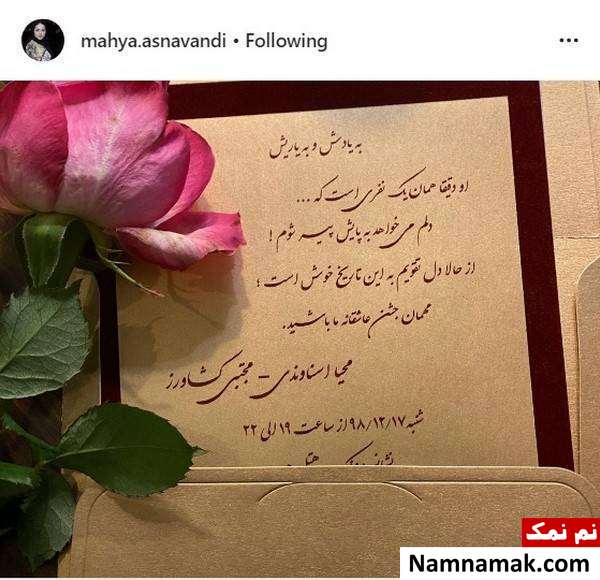 mahya.asnavandi • Following
به یادش و به یاریش
او دقیقا همان یک نفری است که ...
دلم می خواهد به پایش پیر شوم !
از حالا دل تقویم به این تاریخ خوش است ؛
مهمان جشن عاشقانه ما باشید.
محیا اسناوندی - مجتبی کشاورز
شنبه ۹۸/۱۲/۱۷ از ساعت ۱۹ الی ۲۲
هتل
نم نمک
Namnamak.com